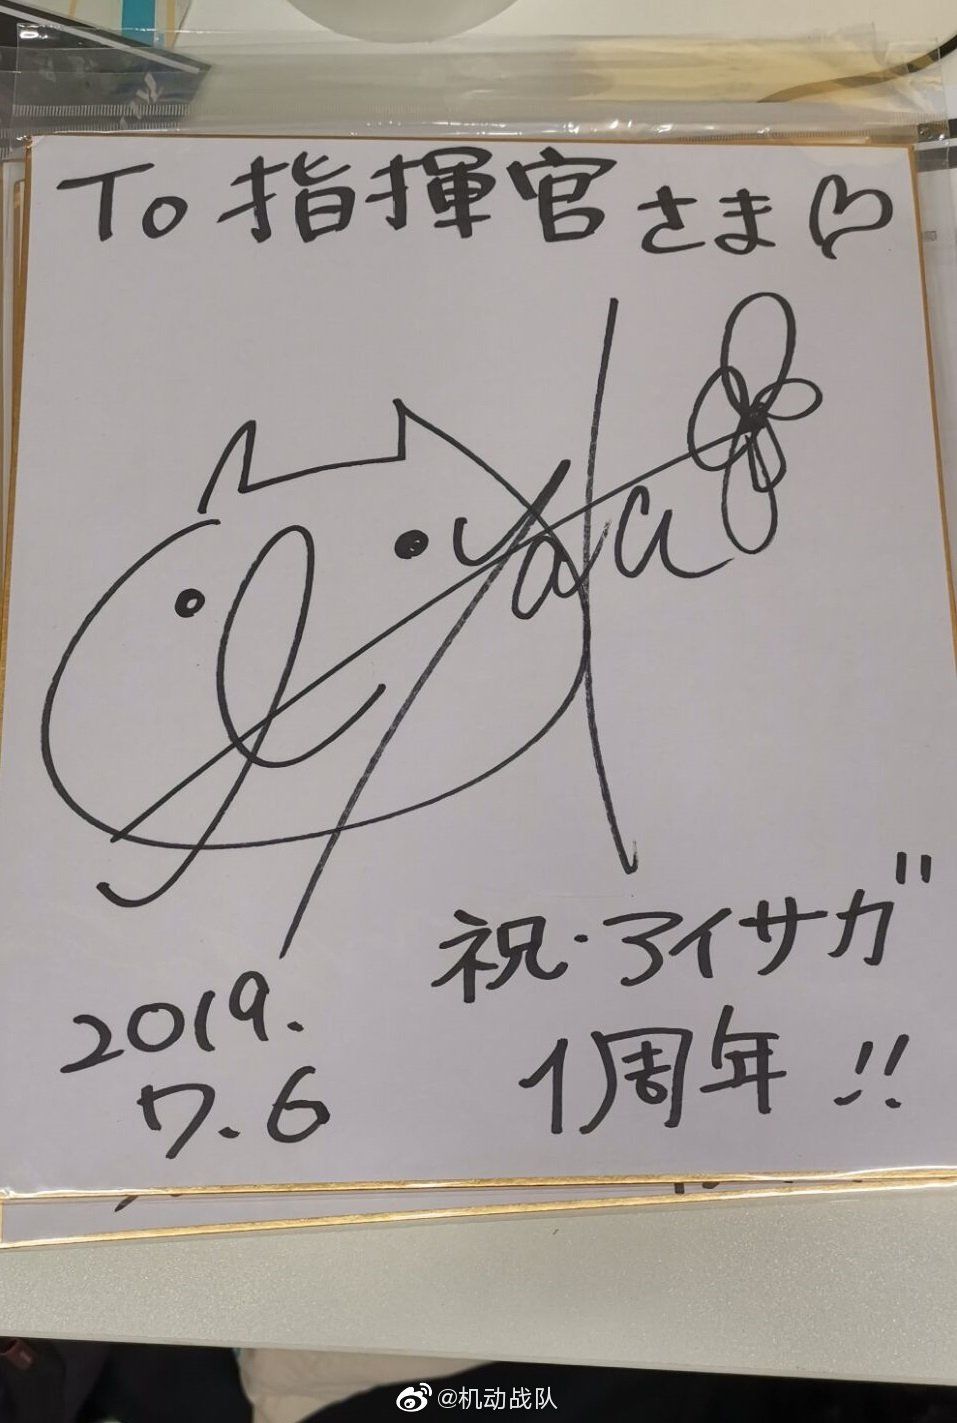 To 指揮官さま♡
祝・アイサガ
1周年!!
2019.
7.6
@机动战队